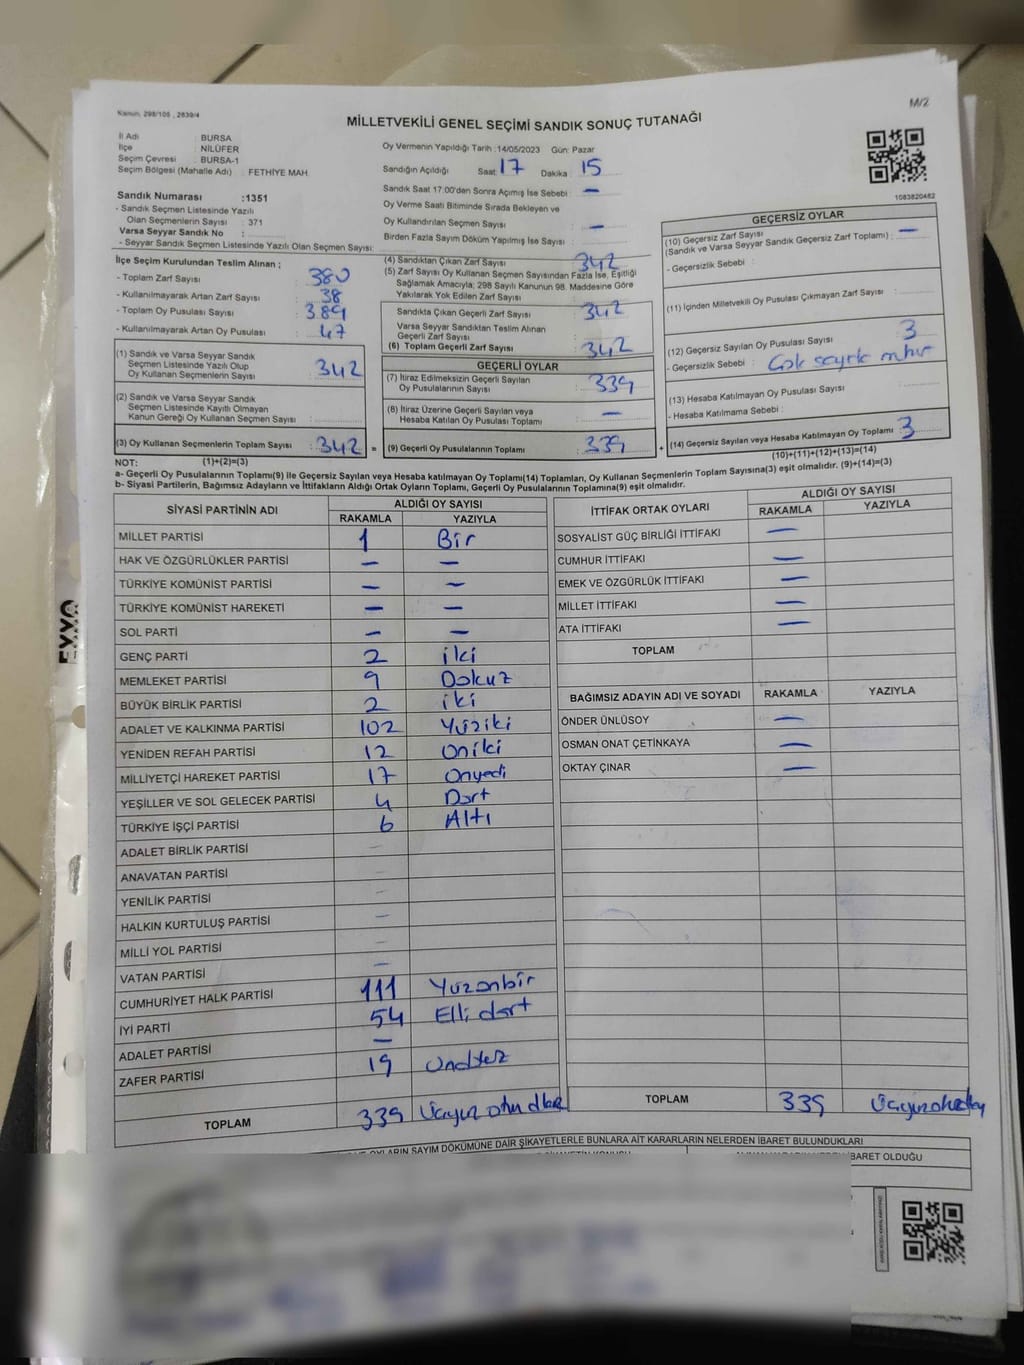 Kanun: 298/105 , 2839/4
M/2
MİLLETVEKİLİ GENEL SEÇİMİ SANDIK SONUÇ TUTANAĞI
İl Adı : BURSA
İlçe : NİLÜFER
Seçim Çevresi : BURSA-1
Seçim Bölgesi (Mahalle Adı) : FETHİYE MAH
Sandık Numarası :1351
- Sandık Seçmen Listesinde Yazılı
Olan Seçmenlerin Sayısı : 371
Varsa Seyyar Sandık No :
- Seyyar Sandık Seçmen Listesinde Yazılı Olan Seçmen Sayısı:
Oy Vermenin Yapıldığı Tarih :14/05/2023 Gün: Pazar
Sandığın Açıldığı Saat 17 Dakika 15
Sandık Saat 17:00'den Sonra Açımış İse Sebebi : —
Oy Verme Saati Bitiminde Sırada Bekleyen ve
Oy Kullandırılan Seçmen Sayısı : —
Birden Fazla Sayım Döküm Yapılmış İse Sayısı :
1083820482
İlçe Seçim Kurulundan Teslim Alınan ;
- Toplam Zarf Sayısı : 380
- Kullanılmayarak Artan Zarf Sayısı : 38
- Toplam Oy Pusulası Sayısı : 389
- Kullanılmayarak Artan Oy Pusulası : 47
(1) Sandık ve Varsa Seyyar Sandık
Seçmen Listesinde Yazılı Olup
Oy Kullanan Seçmenlerin Sayısı : 342
(2) Sandık ve Varsa Seyyar Sandık
Seçmen Listesinde Kayıtlı Olmayan
Kanun Gereği Oy Kullanan Seçmen Sayısı :
(3) Oy Kullanan Seçmenlerin Toplam Sayısı : 342 =
(4) Sandıktan Çıkan Zarf Sayısı : 342
(5) Zarf Sayısı Oy Kullanan Seçmen Sayısından Fazla İse, Eşitliği
Sağlamak Amacıyla; 298 Sayılı Kanunun 98. Maddesine Göre
Yakılarak Yok Edilen Zarf Sayısı :
Sandıkta Çıkan Geçerli Zarf Sayısı : 342
Varsa Seyyar Sandıktan Teslim Alınan
Geçerli Zarf Sayısı :
(6) Toplam Geçerli Zarf Sayısı : 342
GEÇERLİ OYLAR
(7) İtiraz Edilmeksizin Geçerli Sayılan
Oy Pusulalarının Sayısı : 339
(8) İtiraz Üzerine Geçerli Sayılan veya
Hesaba Katılan Oy Pusulası Toplamı : —
(9) Geçerli Oy Pusulalarının Toplamı : 339 +
GEÇERSİZ OYLAR
(10) Geçersiz Zarf Sayısı
(Sandık ve Varsa Seyyar Sandık Geçersiz Zarf Toplamı) : —
- Geçersizlik Sebebi :
(11) İçinden Milletvekili Oy Pusulası Çıkmayan Zarf Sayısı :
(12) Geçersiz Sayılan Oy Pusulası Sayısı : 3
- Geçersizlik Sebebi :
(13) Hesaba Katılmayan Oy Pusulası Sayısı :
- Hesaba Katılmama Sebebi :
(14) Geçersiz Sayılan veya Hesaba Katılmayan Oy Toplamı : 3
NOT: (1)+(2)=(3)
(10)+(11)+(12)+(13)=(14)
a- Geçerli Oy Pusulalarının Toplamı(9) ile Geçersiz Sayılan veya Hesaba katılmayan Oy Toplamı(14) Toplamları, Oy Kullanan Seçmenlerin Toplam Sayısına(3) eşit olmalıdır. (9)+(14)=(3)
b- Siyasi Partilerin, Bağımsız Adayların ve İttifakların Aldığı Ortak Oyların Toplamı, Geçerli Oy Pusulalarının Toplamına(9) eşit olmalıdır.
SİYASİ PARTİNİN ADI
ALDIĞI OY SAYISI
RAKAMLA YAZIYLA
MİLLET PARTİSİ 1 Bir
HAK VE ÖZGÜRLÜKLER PARTİSİ — —
TÜRKİYE KOMÜNİST PARTİSİ — —
TÜRKİYE KOMÜNİST HAREKETİ — —
SOL PARTİ — —
GENÇ PARTİ 2 iki
MEMLEKET PARTİSİ 9 Dokuz
BÜYÜK BİRLİK PARTİSİ 2 iki
ADALET VE KALKINMA PARTİSİ 102 Yüziki
YENİDEN REFAH PARTİSİ 12 Oniki
MİLLİYETÇİ HAREKET PARTİSİ 17 Onyedi
YEŞİLLER VE SOL GELECEK PARTİSİ 4 Dört
TÜRKİYE İŞÇİ PARTİSİ 6 Altı
ADALET BİRLİK PARTİSİ —
ANAVATAN PARTİSİ —
YENİLİK PARTİSİ —
HALKIN KURTULUŞ PARTİSİ —
MİLLİ YOL PARTİSİ —
VATAN PARTİSİ —
CUMHURİYET HALK PARTİSİ 111 Yüzonbir
İYİ PARTİ 54 Elli dört
ADALET PARTİSİ —
ZAFER PARTİSİ 19
TOPLAM 339
İTTİFAK ORTAK OYLARI
ALDIĞI OY SAYISI
RAKAMLA YAZIYLA
SOSYALİST GÜÇ BİRLİĞİ İTTİFAKI —
CUMHUR İTTİFAKI —
EMEK VE ÖZGÜRLÜK İTTİFAKI —
MİLLET İTTİFAKI —
ATA İTTİFAKI —
TOPLAM
BAĞIMSIZ ADAYIN ADI VE SOYADI RAKAMLA YAZIYLA
ÖNDER ÜNLÜSOY —
OSMAN ONAT ÇETİNKAYA —
OKTAY ÇINAR —
TOPLAM 339
OYLARIN SAYIM DÖKÜMÜNE DAİR ŞİKAYETLERLE BUNLARA AİT KARARLARIN NELERDEN İBARET BULUNDUKLARI
İBARET OLDUĞU